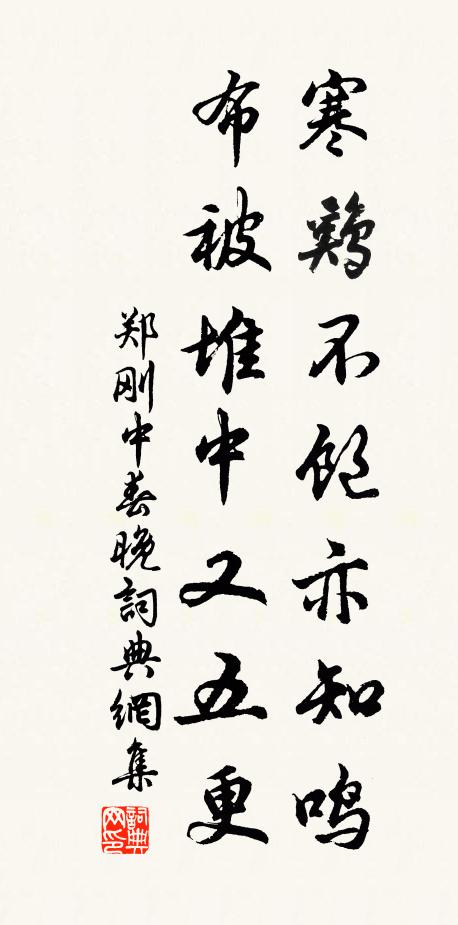 寒鷄不飽亦知鸣
布被堆中又五更
郑刚中春晚詞典網集
詞典网印